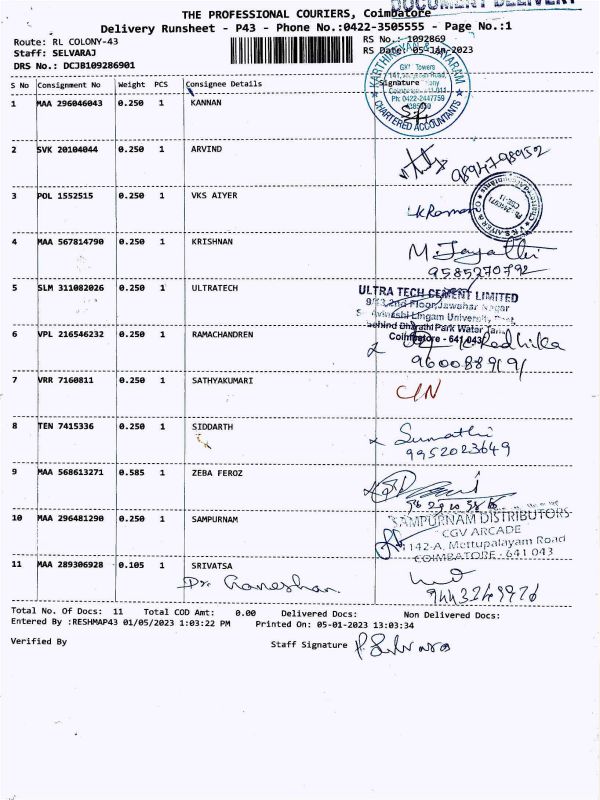 DOCUMENT DELIVERY
THE PROFESSIONAL COURIERS, Coimbatore
Delivery Runsheet - P43 - Phone No.:0422-3505555 - Page No.:1
Route: RL COLONY-43
Staff: SELVARAJ
DRS No.: DCJB109286901
RS No.: 1092869
RS Date: 05-Jan-2023
S No Consignment No Weight PCS Consignee Details Signature
KARTHIKEYAN & JAYARAM
CHARTERED ACCOUNTANTS
Towers
Ph: 0422-2447759
1 MAA 296046043 0.250 1 KANNAN
2 SVK 20104044 0.250 1 ARVIND
9894798952
3 POL 1552515 0.250 1 VKS AIYER
V K S AIYER & CO
4 MAA 567814790 0.250 1 KRISHNAN
M. Jayathi
9585270792
5 SLM 311082026 0.250 1 ULTRATECH
ULTRA TECH CEMENT LIMITED
2nd Floor, Jawahar Nagar
Avinashi Lingam University
behind Bharathi Park Water Tank
Coimbatore - 641 043
6 VPL 216546232 0.250 1 RAMACHANDREN
Radhika
9600889191
7 VRR 7160811 0.250 1 SATHYAKUMARI
CIN
8 TEN 7415336 0.250 1 SIDDARTH
Sumathi
9952023649
9 MAA 568613271 0.585 1 ZEBA FEROZ
10 MAA 296481290 0.250 1 SAMPURNAM
SAMPURNAM DISTRIBUTORS
CGV ARCADE
142-A, Mettupalayam Road
COIMBATORE - 641 043
11 MAA 289306928 0.105 1 SRIVATSA
Dr. Ganeshan
9443249926
Total No. Of Docs: 11 Total COD Amt: 0.00 Delivered Docs: Non Delivered Docs:
Entered By :RESHMAP43 01/05/2023 1:03:22 PM Printed On: 05-01-2023 13:03:34
Verified By Staff Signature P. Selvaraj